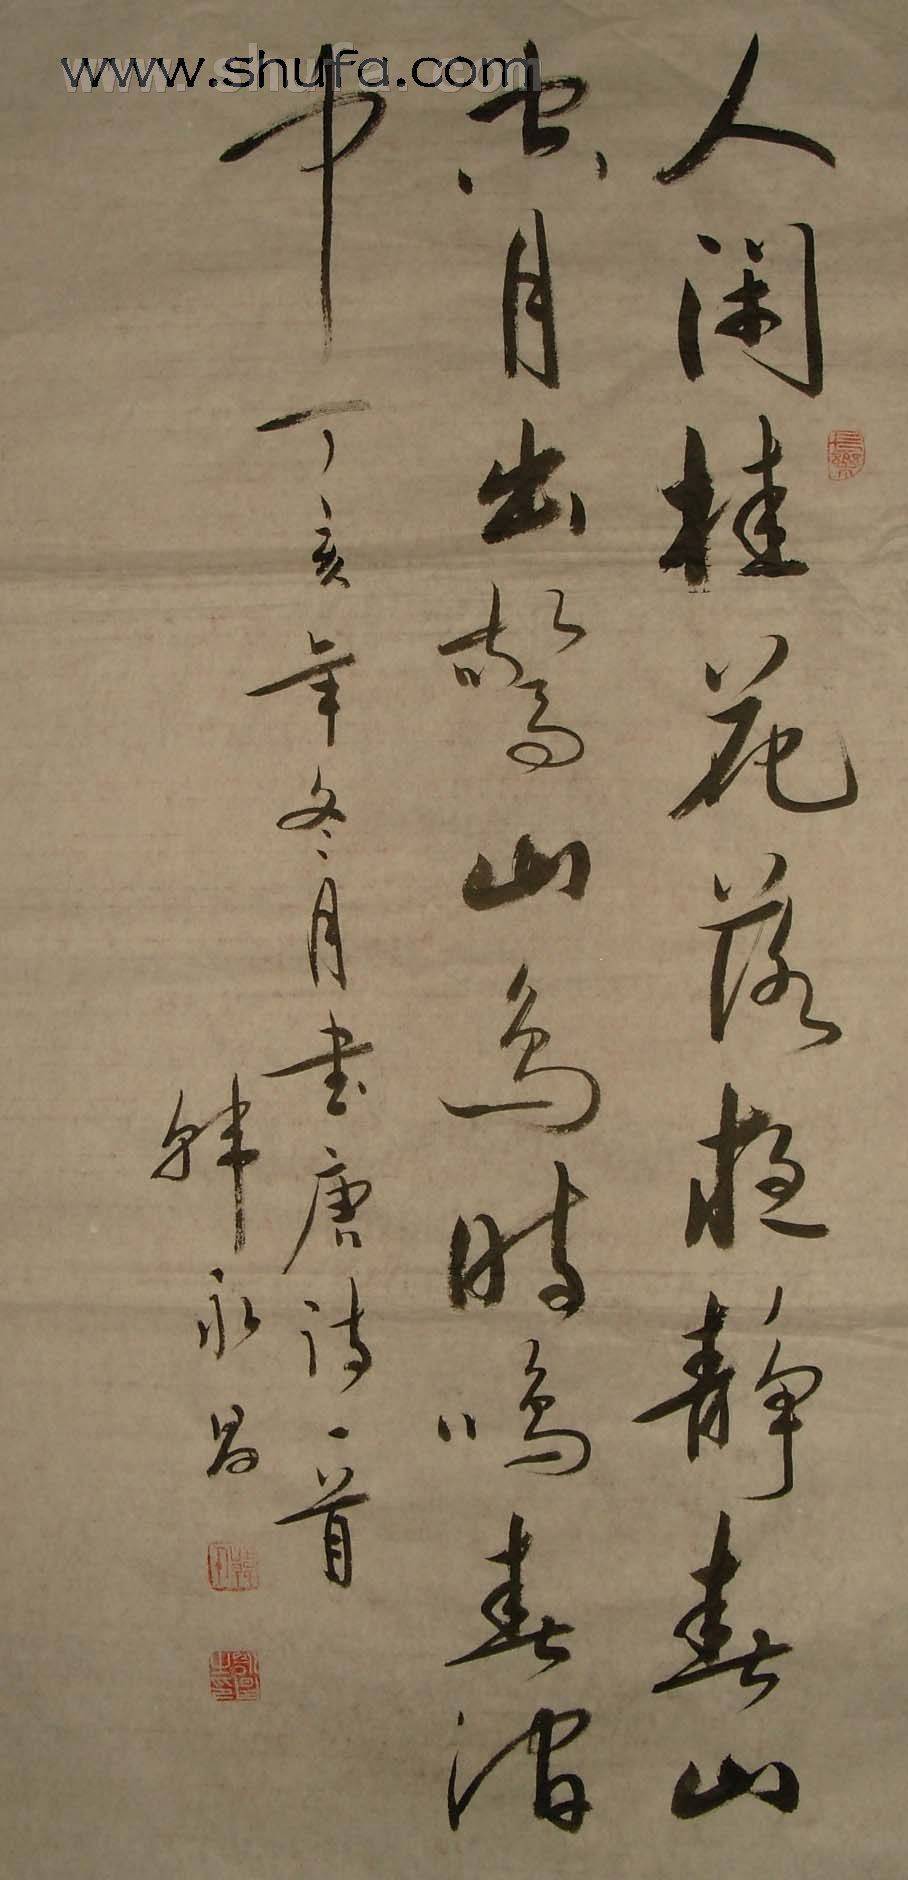 www.shufa.com
人闲桂花落夜静春山
空月出惊山鸟时鸣春涧
中
丁亥年冬月书唐诗一首
韩永昌